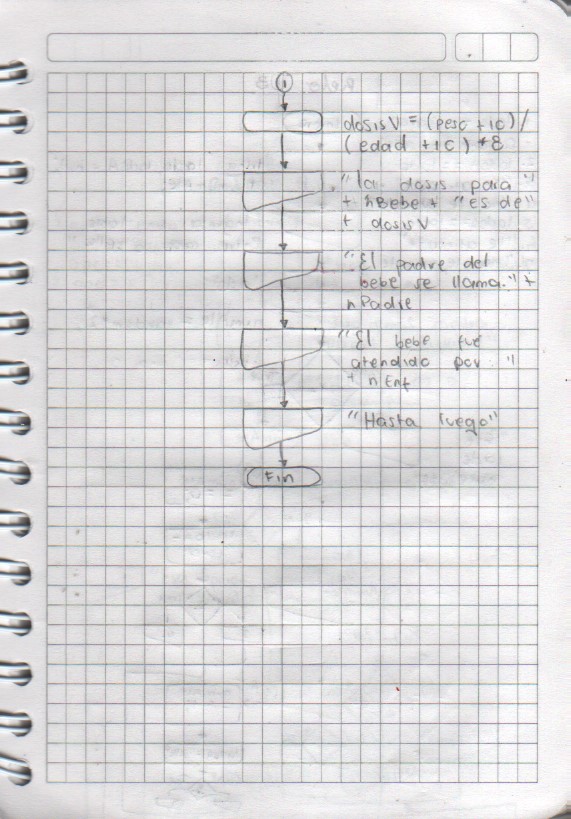 1
dosisV = (peso +10) /
(edad +10) *8
"la dosis para"
+ nBebe + "es de"
+ dosisV
"El padre del
bebe se llama:" +
nPadre
"El bebe fue
atendido por "
+ nEnf
"Hasta luego"
Fin